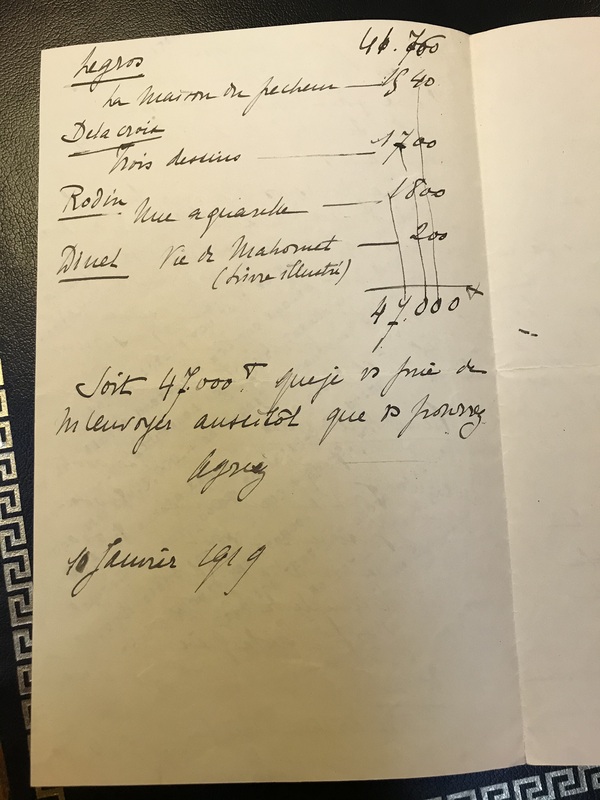 Legros 41.760
La Maison du pecheur — 1540
Delacroix
Trois dessins — 1700
Rodin Une aquarelle — 1800
Dinet Vie de Mahomet — 200
(Livre illustré)
47.000 F
Soit 47.000 F que je vs prie de
m'envoyer aussitôt que vs pourrez
Agréez
10 Janvier 1919